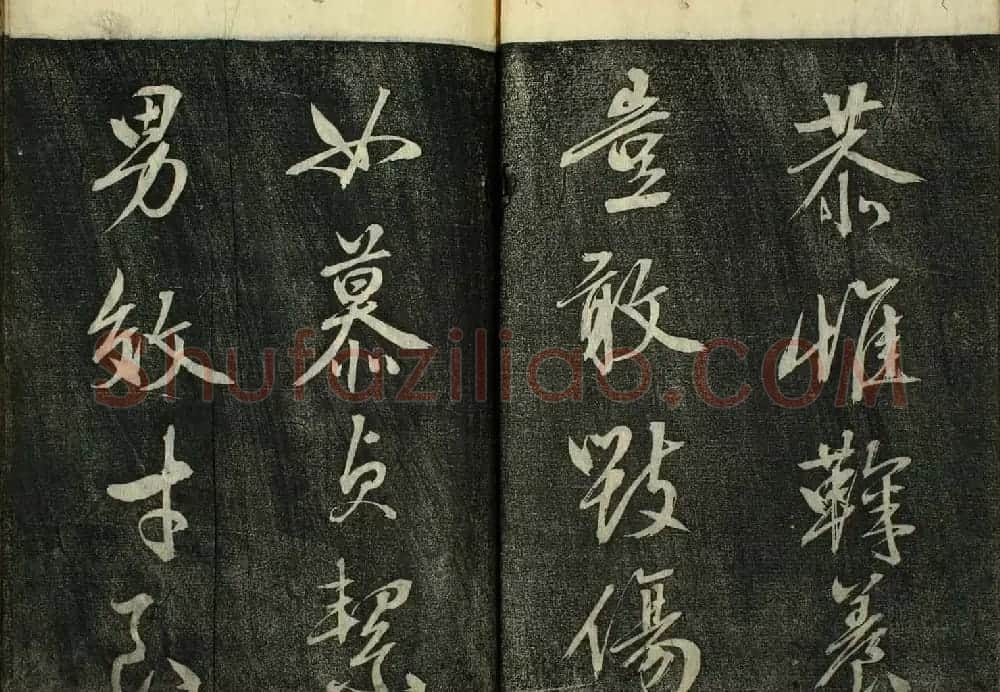 恭惟鞠養
豈敢毀傷
女慕貞絜
男效才良
Shufaziliao.COM